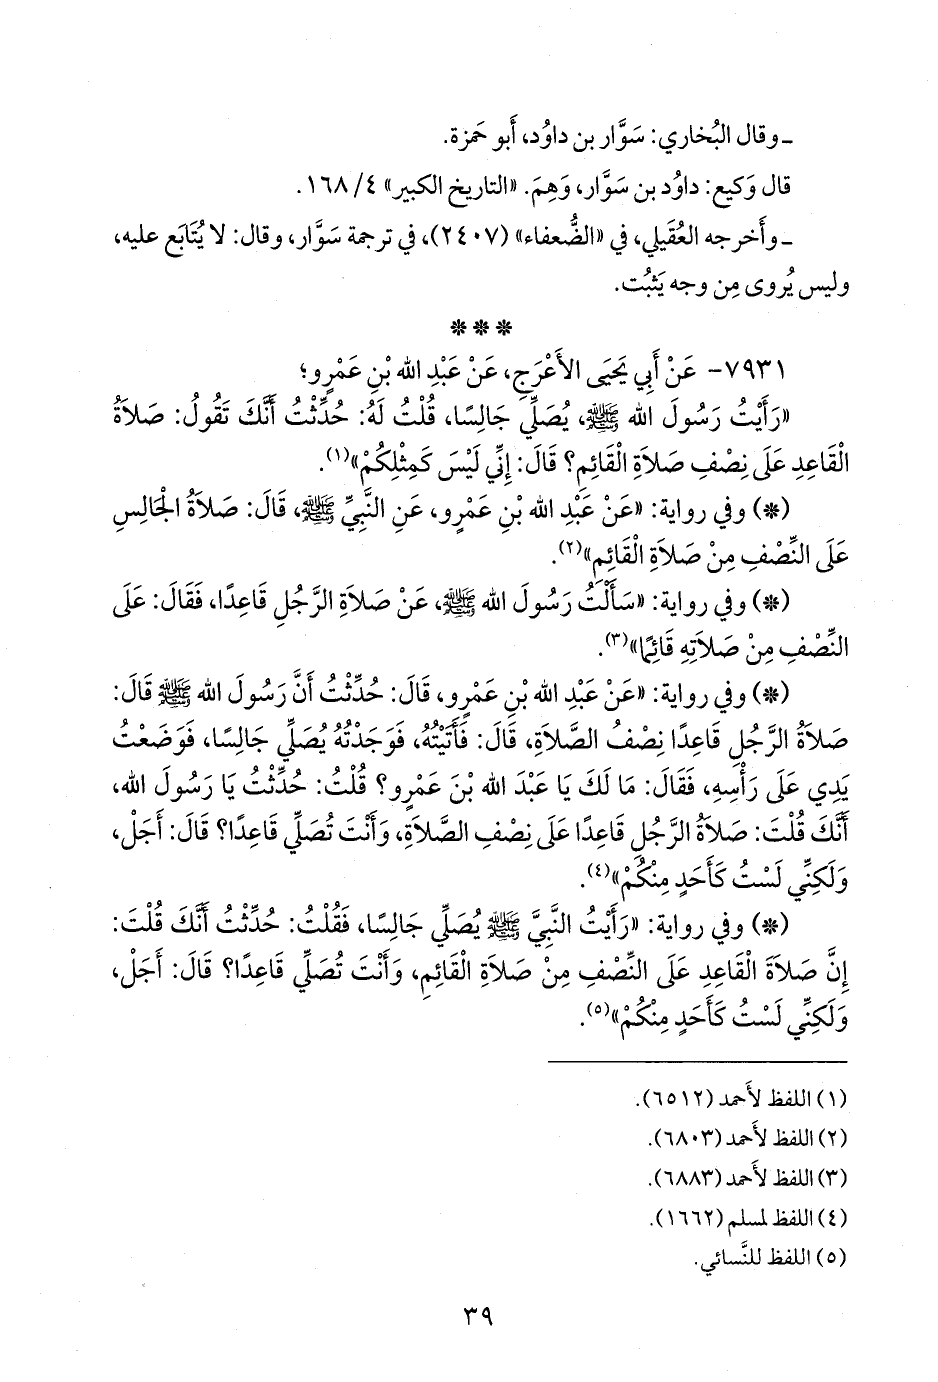 ـ وقال البُخاري: سَوَّار بن داوُد، أَبو حَمزة.
قال وَكيع: داوُد بن سَوَّار، وَهِمَ. «التاريخ الكبير» ٤/ ١٦٨.
ـ وأَخرجه العُقيلي، في «الضُّعفاء» (٢٤٠٧)، في ترجمة سَوَّار، وقال: لا يُتَابَع عليه،
وليس يُروى مِن وجه يَثبُت.
***
٧٩٣١- عَنْ أَبِي يَحيَى الأَعْرَجِ، عَنْ عَبْدِ الله بْنِ عَمْرٍو؛
«رَأَيْتُ رَسُولَ الله ﷺ، يُصَلِّي جَالِسًا، قُلْتُ لَهُ: حُدِّثْتُ أَنَّكَ تَقُولُ: صَلاَةُ
الْقَاعِدِ عَلَى نِصْفِ صَلاَةِ الْقَائِمِ؟ قَالَ: إِنِّي لَيْسَ كَمِثْلِكُمْ»(١).
(*) وفي رواية: «عَنْ عَبْدِ الله بْنِ عَمْرٍو، عَنِ النَّبِيِّ ﷺ، قَالَ: صَلاَةُ الْجَالِسِ
عَلَى النِّصْفِ مِنْ صَلاَةِ الْقَائِمِ»(٢).
(*) وفي رواية: «سَأَلْتُ رَسُولَ الله ﷺ، عَنْ صَلاَةِ الرَّجُلِ قَاعِدًا، فَقَالَ: عَلَى
النِّصْفِ مِنْ صَلاَتِهِ قَائِمًا»(٣).
(*) وفي رواية: «عَنْ عَبْدِ الله بْنِ عَمْرٍو، قَالَ: حُدِّثْتُ أَنَّ رَسُولَ الله ﷺ قَالَ:
صَلاَةُ الرَّجُلِ قَاعِدًا نِصْفُ الصَّلاَةِ، قَالَ: فَأَتَيْتُهُ، فَوَجَدْتُهُ يُصَلِّي جَالِسًا، فَوَضَعْتُ
يَدِي عَلَى رَأْسِهِ، فَقَالَ: مَا لَكَ يَا عَبْدَ الله بْنَ عَمْرٍو؟ قُلْتُ: حُدِّثْتُ يَا رَسُولَ الله،
أَنَّكَ قُلْتَ: صَلاَةُ الرَّجُلِ قَاعِدًا عَلَى نِصْفِ الصَّلاَةِ، وَأَنْتَ تُصَلِّي قَاعِدًا؟ قَالَ: أَجَلْ،
وَلَكِنِّي لَسْتُ كَأَحَدٍ مِنْكُمْ»(٤).
(*) وفي رواية: «رَأَيْتُ النَّبِيَّ ﷺ يُصَلِّي جَالِسًا، فَقُلْتُ: حُدِّثْتُ أَنَّكَ قُلْتَ:
إِنَّ صَلاَةَ الْقَاعِدِ عَلَى النِّصْفِ مِنْ صَلاَةِ الْقَائِمِ، وَأَنْتَ تُصَلِّي قَاعِدًا؟ قَالَ: أَجَلْ،
وَلَكِنِّي لَسْتُ كَأَحَدٍ مِنْكُمْ»(٥).
(١) اللفظ لأَحمد (٦٥١٢).
(٢) اللفظ لأَحمد (٦٨٠٣).
(٣) اللفظ لأَحمد (٦٨٨٣).
(٤) اللفظ لمسلم (١٦٦٢).
(٥) اللفظ للنَّسائي.
٣٩